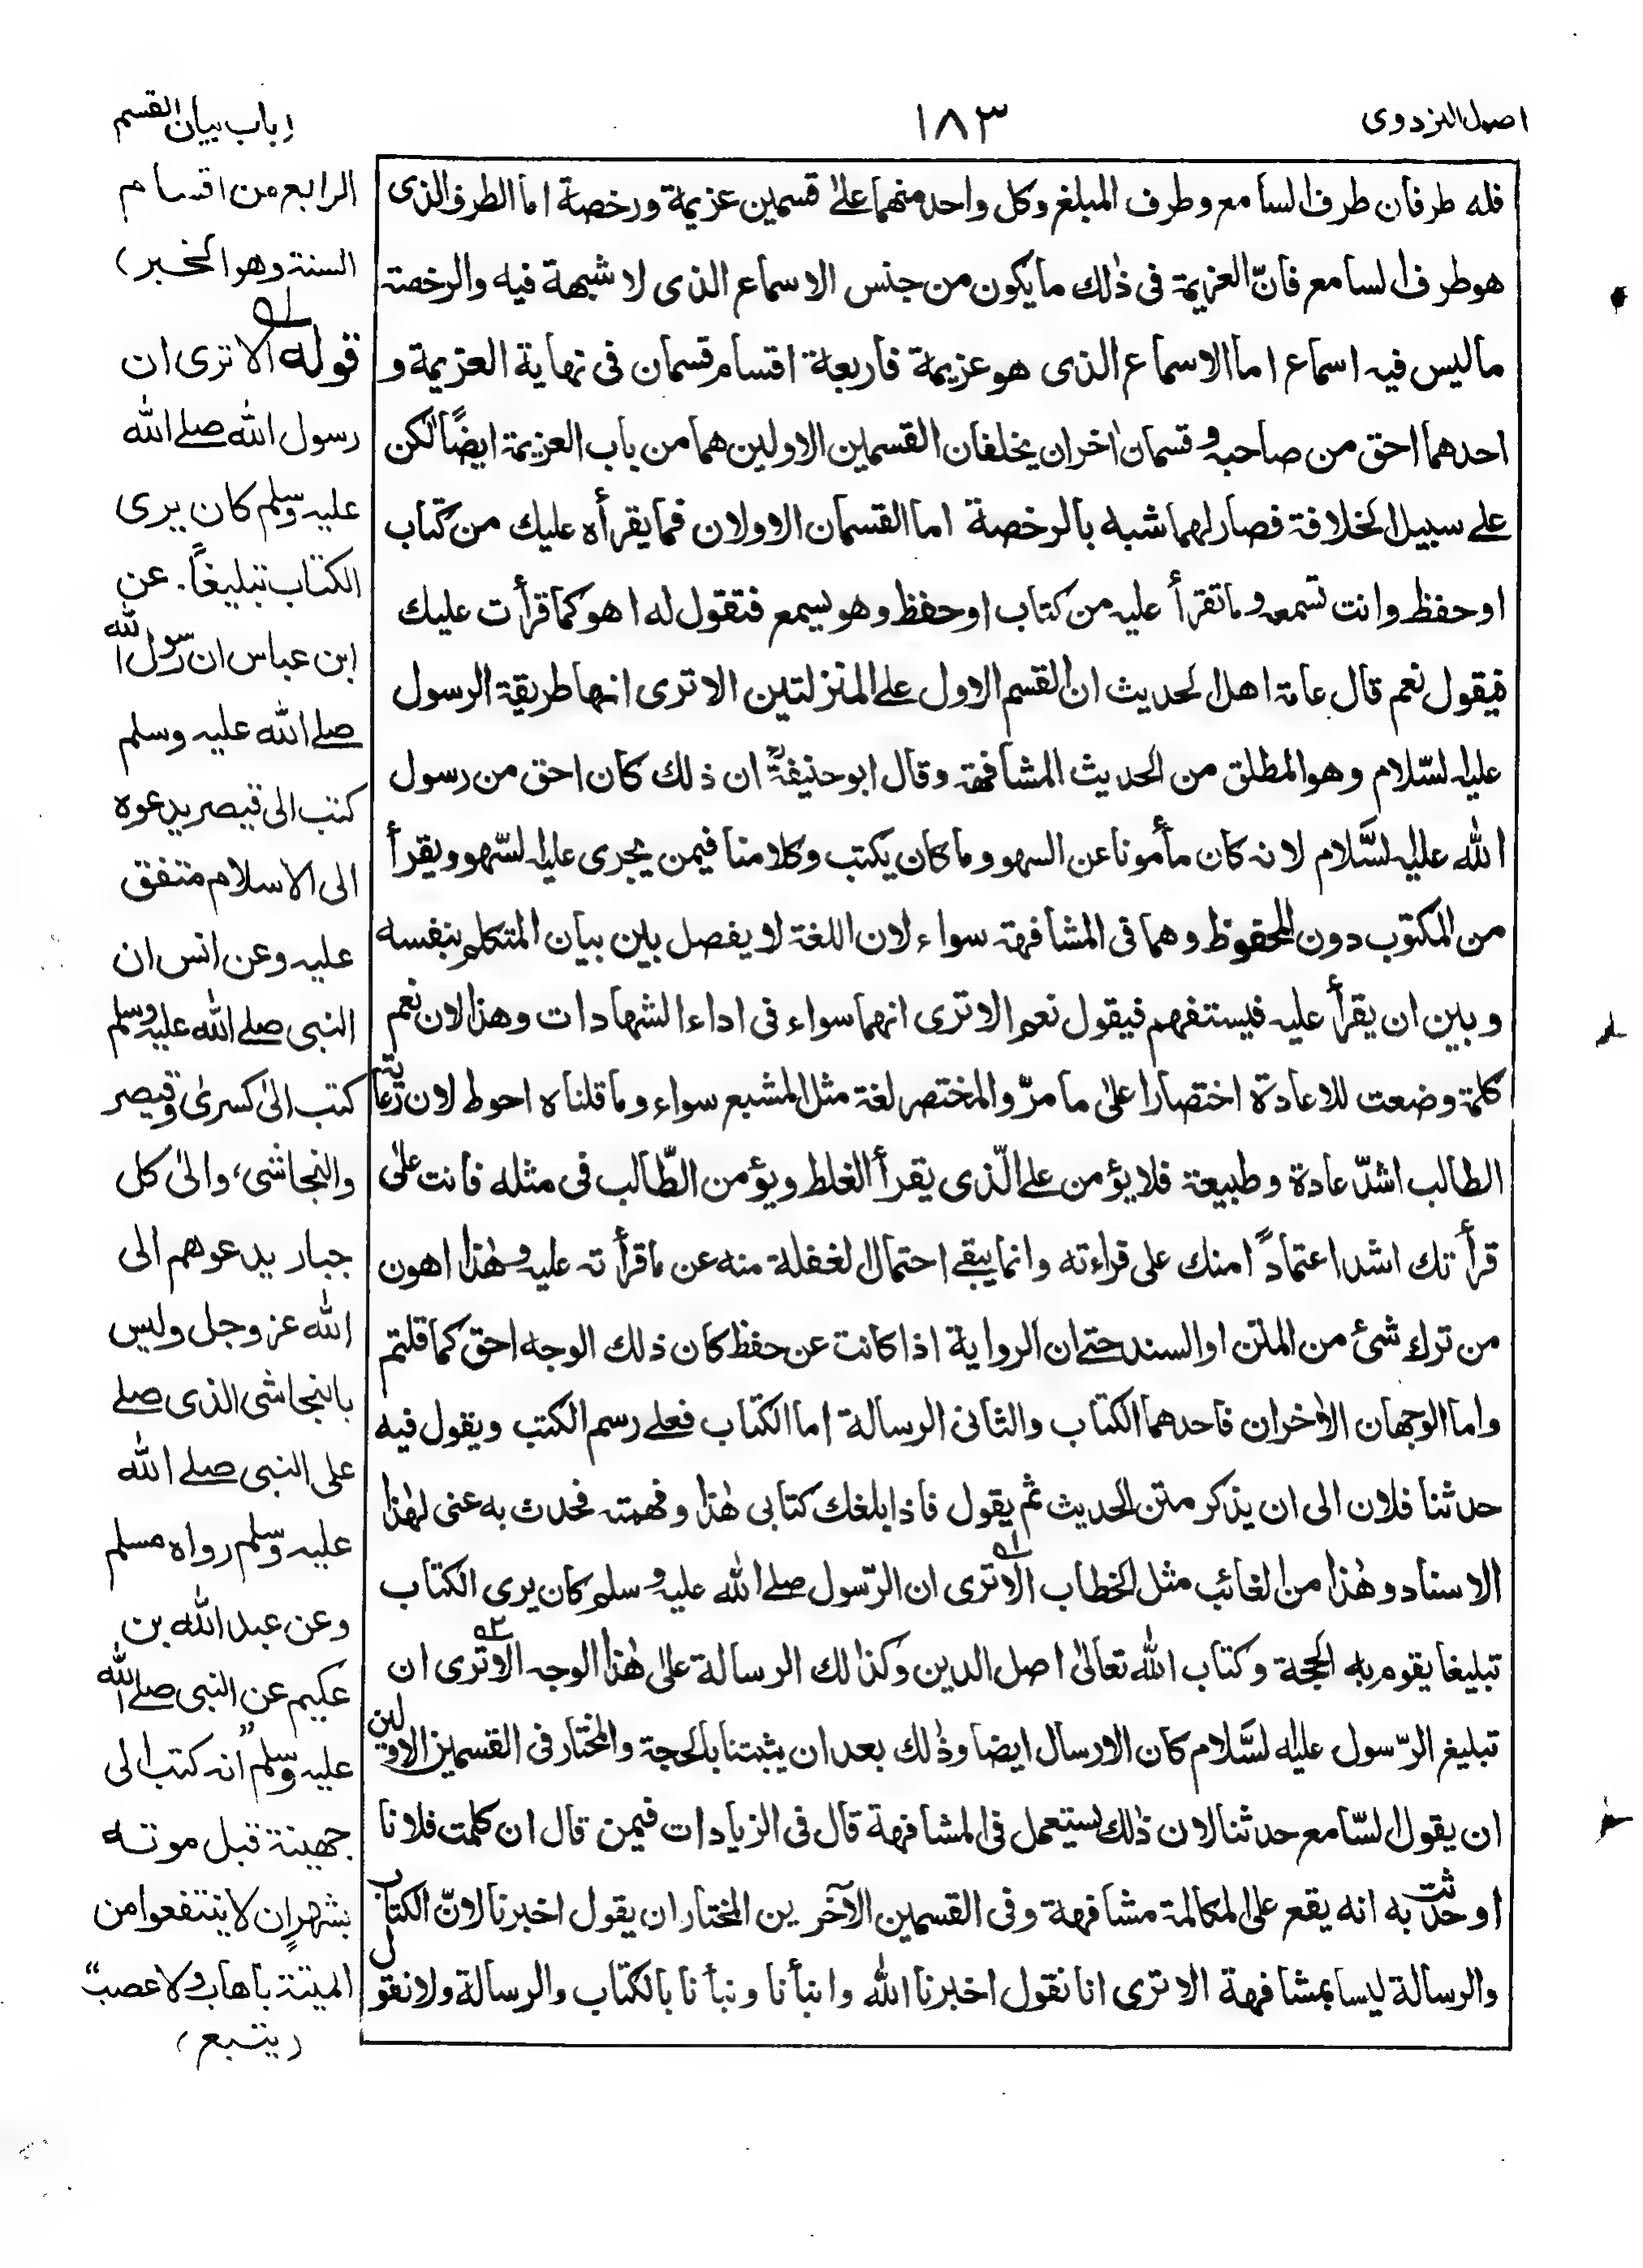 اصول البزدوی
١٨٣
(باب بیان القسم
فله طرفان طرف السامع وطرف المبلغ وكل واحد منهما علی قسمین عزیمة ورخصة اما الطرف الذی
هو طرف السامع فانّ العزیمة فی ذٰلك ما یكون من جنس الاسماع الذی لا شبهة فیه والرخصة
ما لیس فیه اسماع اما الاسماع الذی هو عزیمة فاربعة اقسام قسمان فی نهایة العزیمة و
احدهما احق من صاحبه وقسمان اٰخران یخلفان القسمین الاولین هما من باب العزیمة ایضًا لٰكن
علی سبیل الخلافة فصار لهما شبه بالرخصة اما القسمان الاولان فما یقرأه علیك من كتاب
او حفظ وانت تسمعه وما تقرأ علیه من كتاب او حفظ وهو یسمع فتقول له اهو كما قرأت علیك
فیقول نعم قال عامة اهل الحدیث ان القسم الاول علی المنزلتین الا تری انها طریقة الرسول
علیه السّلام وهو المطلق من الحدیث المشافهة وقال ابو حنیفةؒ ان ذلك كان احق من رسول
الله علیه السَّلام لانه كان مأمونا عن السهو وما كان یكتب وكلامنا فیمن یجری علیه السّهو ویقرأ
من المكتوب دون المحفوظ وهما فی المشافهة سواء لان اللغة لا یفصل بین بیان المتكلم بنفسه
وبین ان یقرأ علیه فیستفهم فیقول نعم الا تری انهما سواء فی اداء الشهادات وهذا لان نعم
كلمة وضعت للاعادة اختصارا علی ما مرّ والمختصر لغة مثل المشبع سواء وما قلناه احوط لان رعایة
الطالب اشدّ عادة وطبیعة فلا یؤمن علی الّذی یقرأ الغلط ویؤمن الطّالب فی مثله فانت علی
قرأتك اشد اعتمادًا منك علی قراءته وانما یبقی احتمال الغفلة منه عن ما قرأته علیه وهٰذا اهون
من ترك شیئ من المتن او السند حتی ان الروایة اذا كانت عن حفظ كان ذلك الوجه احق كما قلتم
واما الوجهان الاٰخران فاحدهما الكتاب والثانی الرسالة اما الكتاب فعلی رسم الكتب ویقول فیه
حدثنا فلان الی ان یذكر متن الحدیث ثم یقول فاذا بلغك كتابی هٰذا وفهمته فحدث به عنی لهٰذا
الاسناد وهٰذا من الغائب مثل الخطاب الا تری ١ه ان الرّسول صلی الله علیه وسلم كان یری الكتاب
تبلیغا یقوم به الحجة وكتاب الله تعالیٰ اصل الدین وكذالك الرسالة علیٰ هٰذا الوجه الا تری ٢ه ان
تبلیغ الرّسول علیه السَّلام كان الارسال ایضا وذٰلك بعد ان یثبتنا بالحجة والمختار فی القسمین الاولین
ان یقول السّامع حدثنا لان ذٰلك یستعمل فی المشافهة قال فی الزیادات فیمن قال ان كلمت فلانا
او حدثت به انه یقع علی المكالمة مشافهة وفی القسمین الآخرین المختار ان یقول اخبرنا لانّ الكتاب
والرسالة لیسا بمشافهة الا تری انا نقول اخبرنا الله وانبأنا ونبأنا بالكتاب والرسالة ولا نقول
الرابع من اقسام
السنة وهو الخبر)
قوله ١ه الا تری ان
رسول الله صلی الله
علیه وسلم كان یری
الكتاب تبلیغاً. عن
ابن عباس ان رسول الله
صلی الله علیه وسلم
كتب الی قیصر یدعوه
الی الاسلام متفق
علیه وعن انس ان
النبی صلی الله علیه وسلم
كتب الیٰ كسریٰ وقیصر
والنجاشی، والیٰ كل
جبار یدعوهم الی
الله عز وجل ولیس
بالنجاشی الذی صلی
علی النبی صلی الله
علیه وسلم رواه مسلم
وعن عبد الله بن
عكیم عن النبی صلی الله
علیه وسلم "انه كتب الی
جهینة قبل موته
بشهر ان لا ینتفعوا من
المیتة باهاب ولا عصب"
(یتبع)